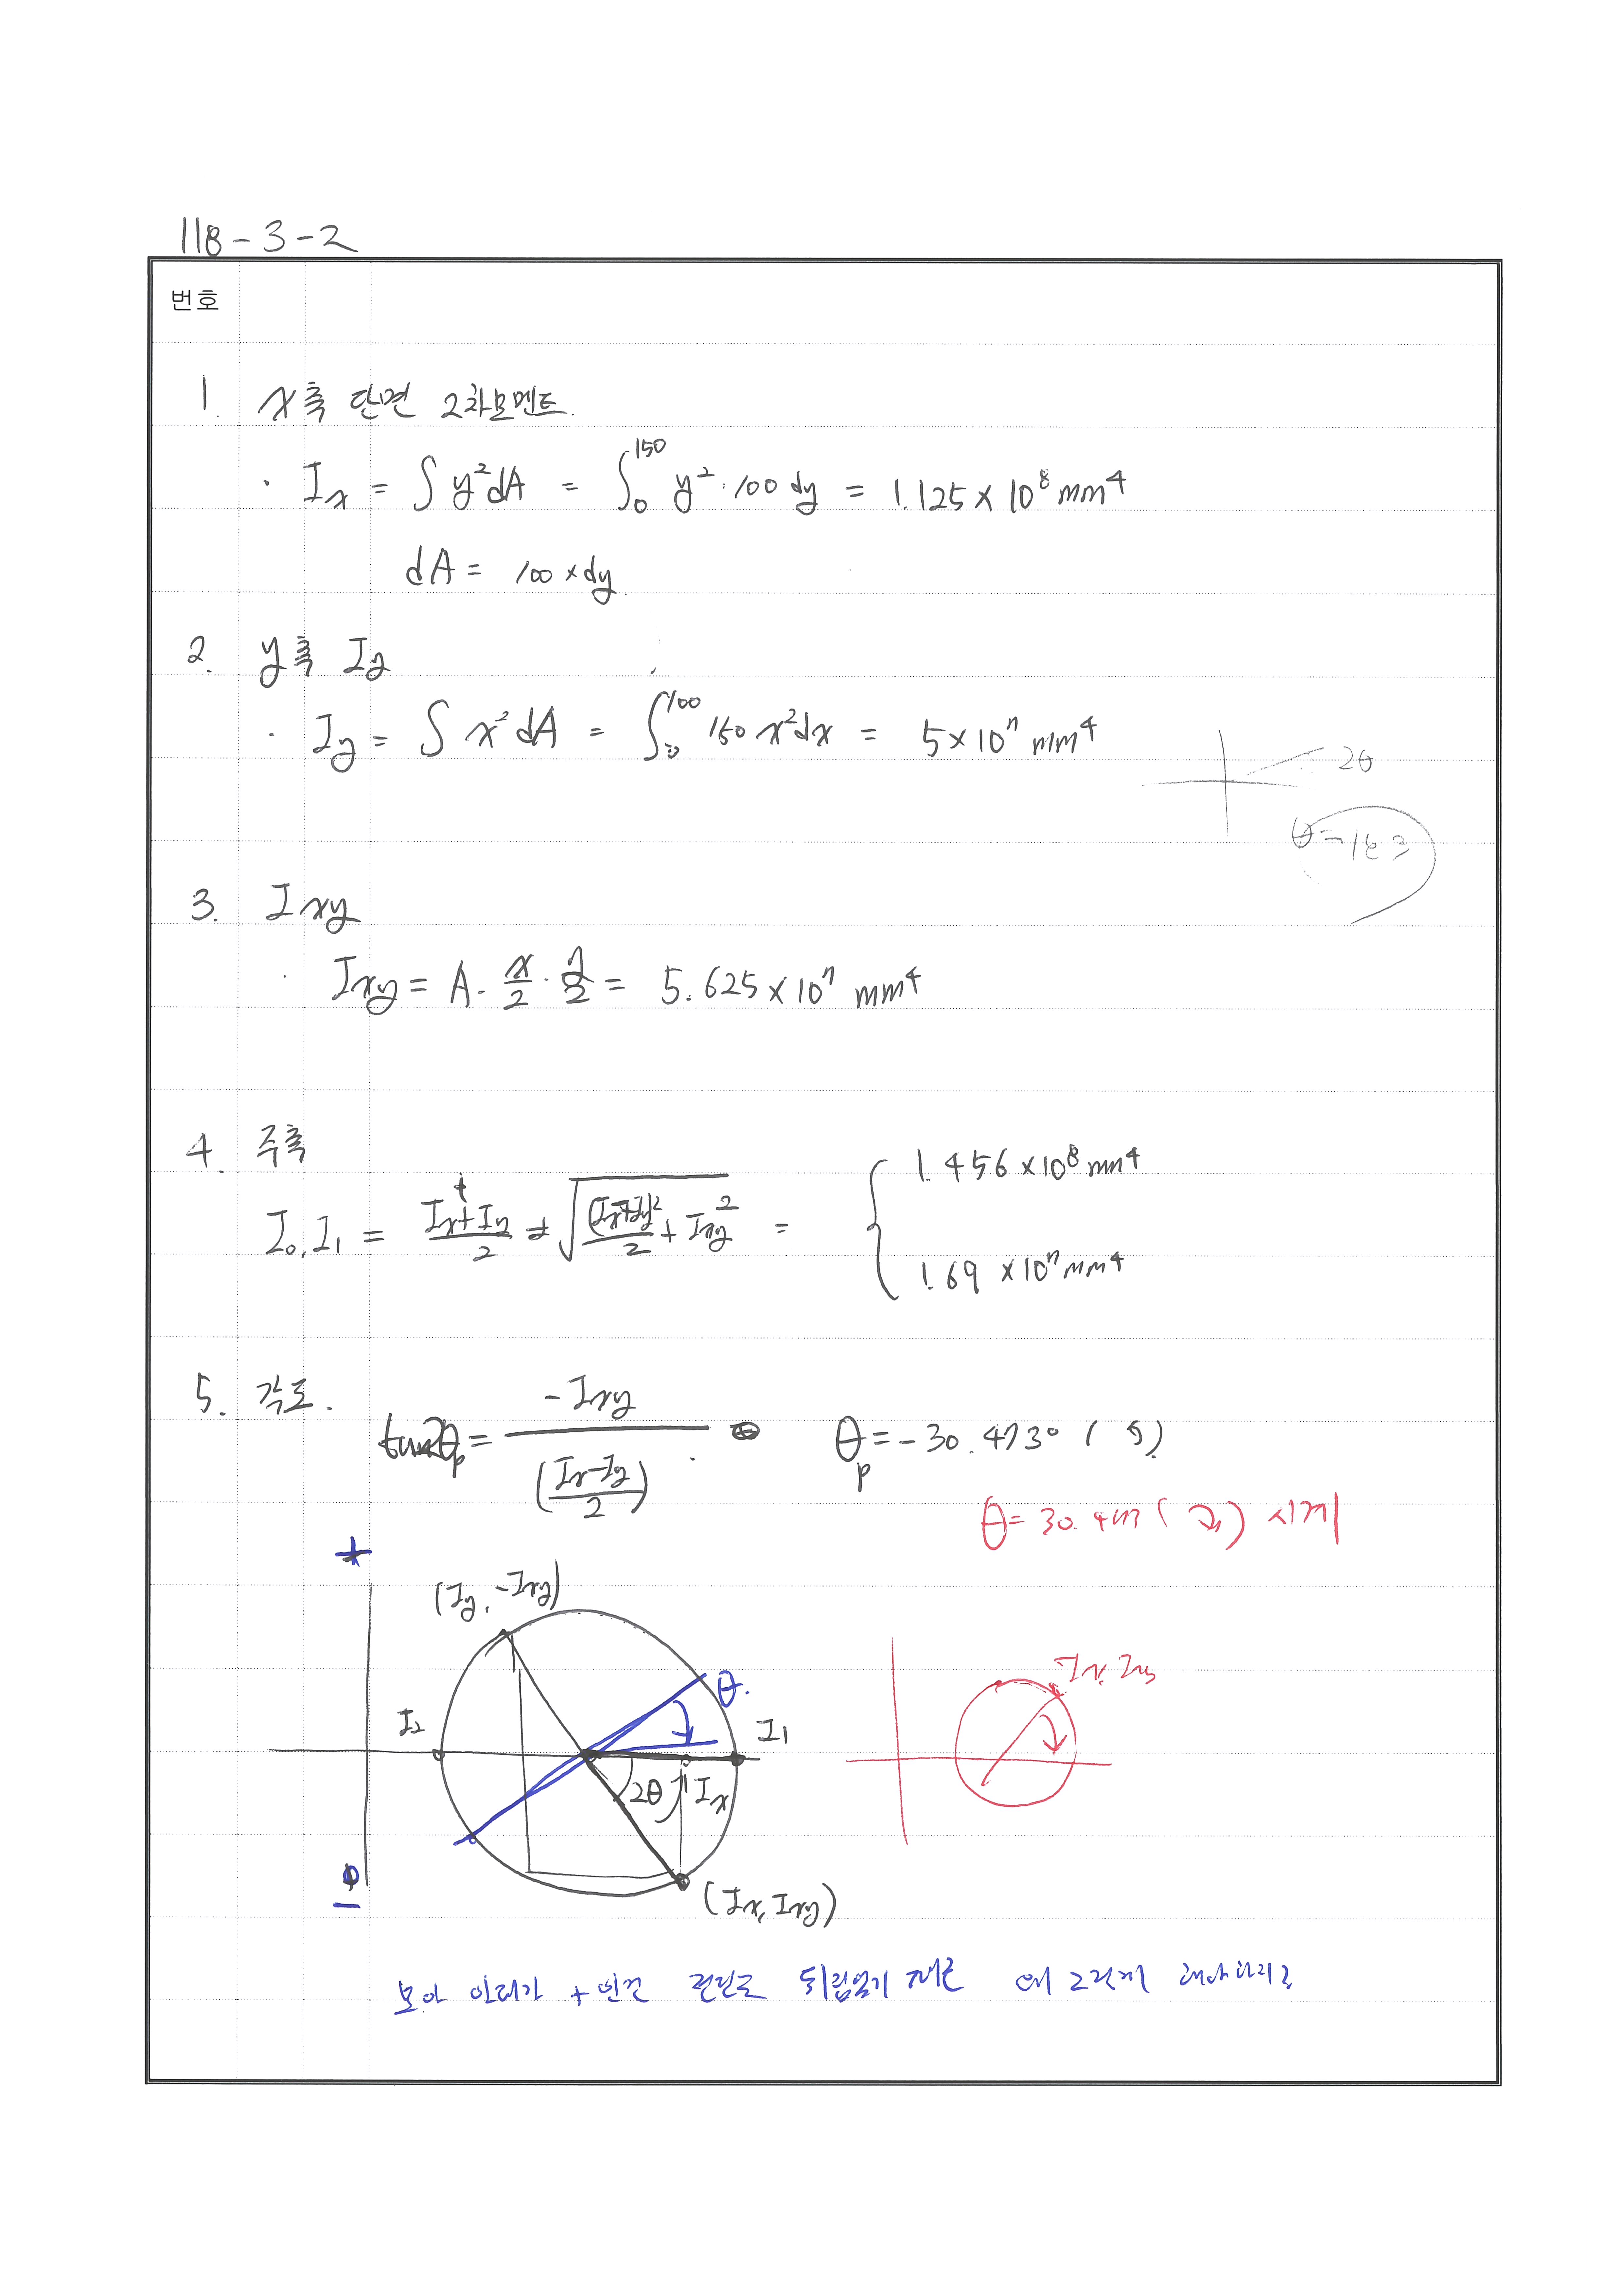 118-3-2
번호
1. x축 단면 2차모멘트.
· Ix = ∫ y²dA = ∫₀¹⁵⁰ y²·100 dy = 1.125 × 10⁸ mm⁴
dA = 100 × dy
2. y축 Iy
· Iy = ∫ x²dA = ∫₀¹⁰⁰ 150 x²dx = 5×10⁷ mm⁴
2θ
3. Ixy
· Ixy = A · x/2 · y/2 = 5.625 × 10⁷ mm⁴
4. 주축
I₀, I₁ = (Ix+Iy)/2 ± √( + Ixy²) = { 1.456 × 10⁸ mm⁴
1.69 × 10⁷ mm⁴
5. 각도.
tan2θp = -Ixy / ((Ix-Iy)/2) θp = -30.473° ( )
θ = 30.473 ( ) 시계
+
(Iy, -Ixy)
θ.
Ix, Ixy
I₂
I₁
2θ
Ix
(Ix, Ixy)
모아 아래가 + 인건 왜 그렇게 해야하지?